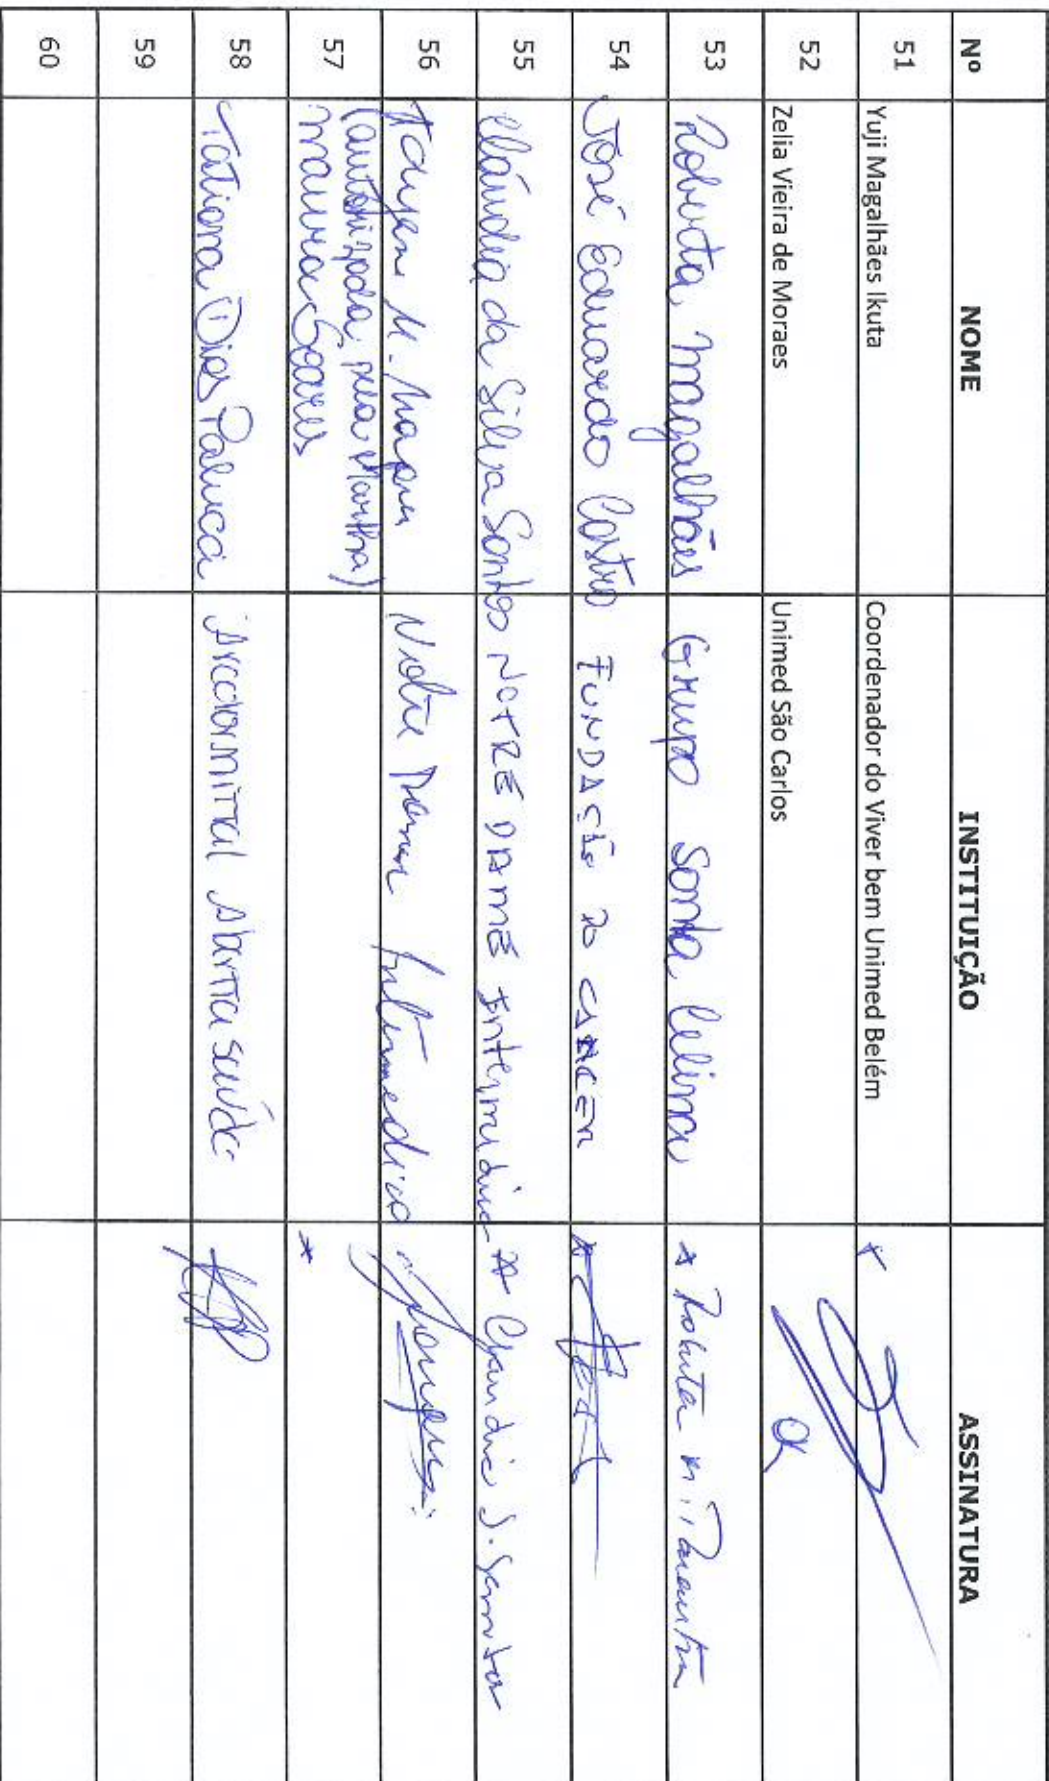 Nº NOME INSTITUIÇÃO ASSINATURA
51 Yuji Magalhães Ikuta Coordenador do Viver bem Unimed Belém
52 Zelia Vieira de Moraes Unimed São Carlos
53 Roberta Magalhães Grupo Santa Celina * Roberta M.
54 José Eduardo Castro FUNDAÇÃO DO CANCER
55 Cláudia da Silva Santos NOTRE DAME Intermédica * Claudia S. Santos
56 M. Notre Dame Intermedica
(autorizada pela Martha)
57 Maura Soares *
58 Tatiana Dias Palucci Arcelormittal Abertta saúde
59
60